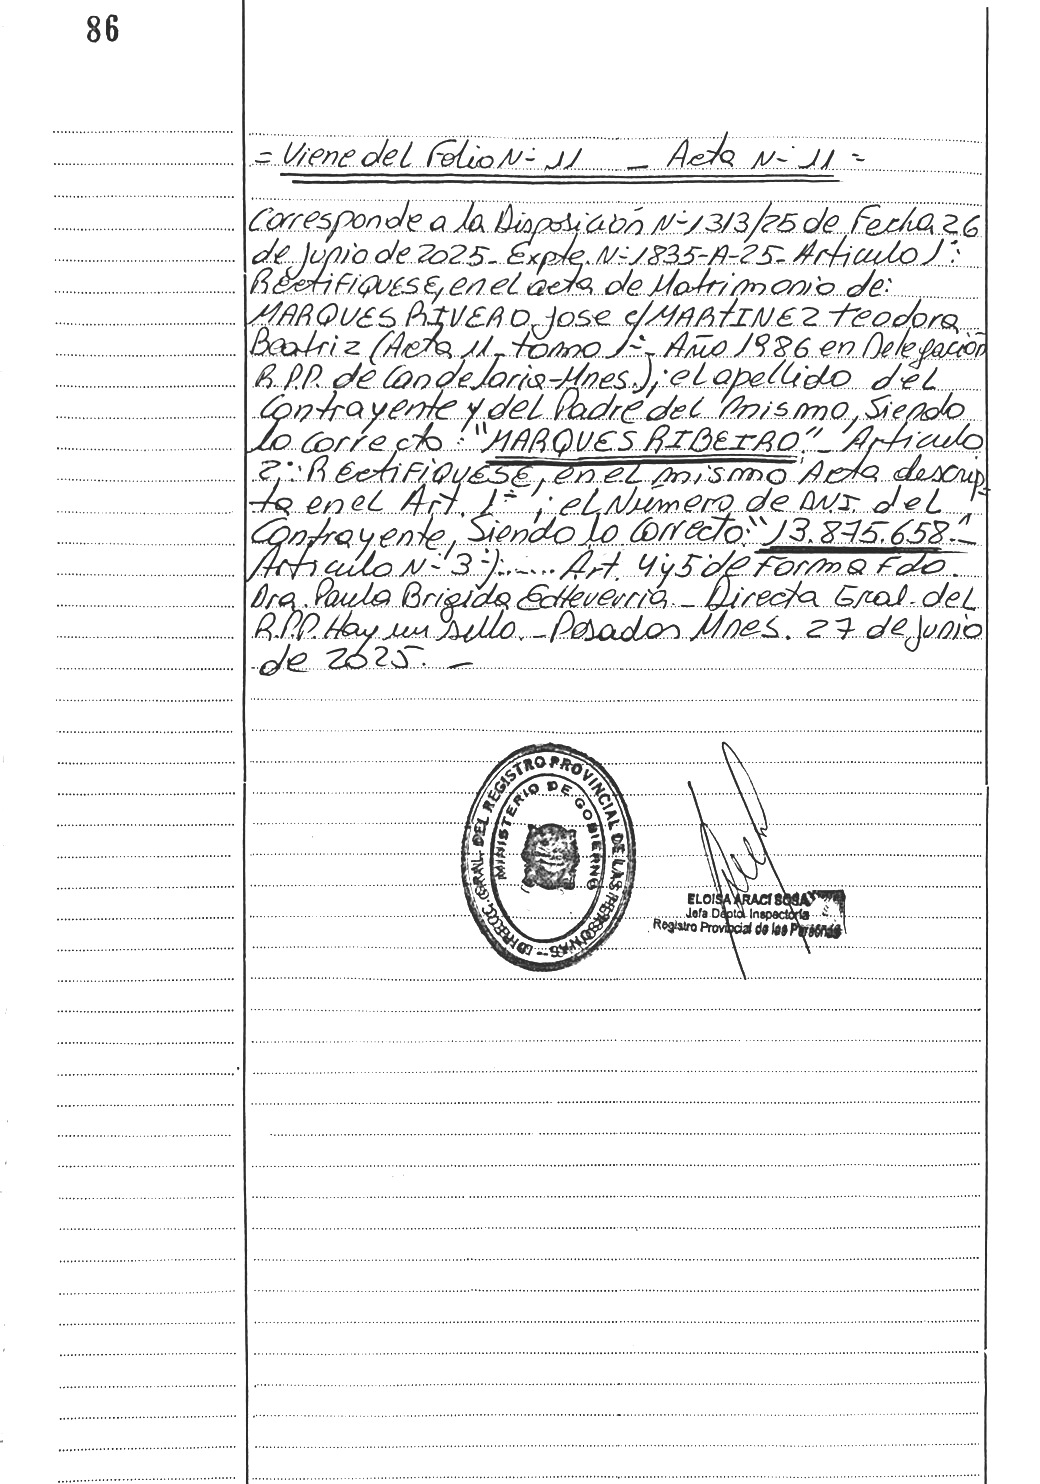 86
= Viene del Folio Nº 11 _ Acta Nº 11 =
Corresponde a la Disposición Nº 1313/25 de Fecha 26
de Junio de 2025_ Expte. Nº 1835-A-25_ Articulo 1º:
RECTIFIQUESE, en el acta de Matrimonio de:
MARQUES RIVERO Jose c/ MARTINEZ Teodora
Beatriz (Acta 11_ tomo 1º_ Año 1986 en Delegación
R.P.P. de Candelaria-Mnes.); el apellido del
Contrayente y del Padre del mismo, Siendo
lo correcto: "MARQUES RIBEIRO"_ Articulo
2º: RECTIFIQUESE, en el mismo Acta descrip-
ta en el Art. 1º; el Número de DNI. del
Contrayente, Siendo lo correcto: "13.875.658."
Articulo Nº 3º)...... Art. 4 y 5 de Forma Fdo.
Dra. Paula Brigida Echeverria_ Directa Gral. del
R.P.P. Hay un sello._ Posadas Mnes. 27 de Junio
de 2025. _
DIRECC. GRAL. DEL REGISTRO PROVINCIAL DE LAS PERSONAS
MINISTERIO DE GOBIERNO
ELOISA ARACI SOSA
Jefa Depto. Inspectoría
Registro Provincial de las Personas